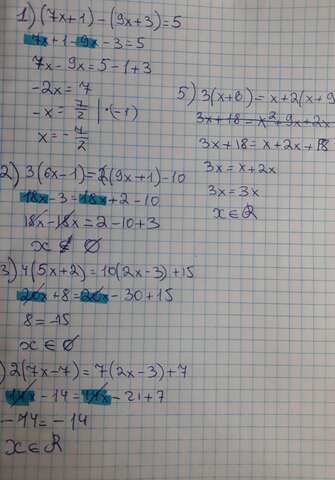 1) (7x+1)-(9x+3)=5
7x+1-9x-3=5
7x-9x=5-1+3
-2x=7
-x=7/2 |·(-1)
x=-7/2
2) 3(6x-1)=2(9x+1)-10
18x-3=18x+2-10
18x-18x=2-10+3
x ∉ ∅
3) 4(5x+2)=10(2x-3)+15
20x+8=20x-30+15
8=-15
x∈∅
) 2(7x-7)=7(2x-3)+7
14x-14=14x-21+7
-14=-14
x∈R
5) 3(x+6)=x+2(x+9
3x+18=x²+9x+2x
3x+18=x+2x+18
3x=x+2x
3x=3x
x∈R